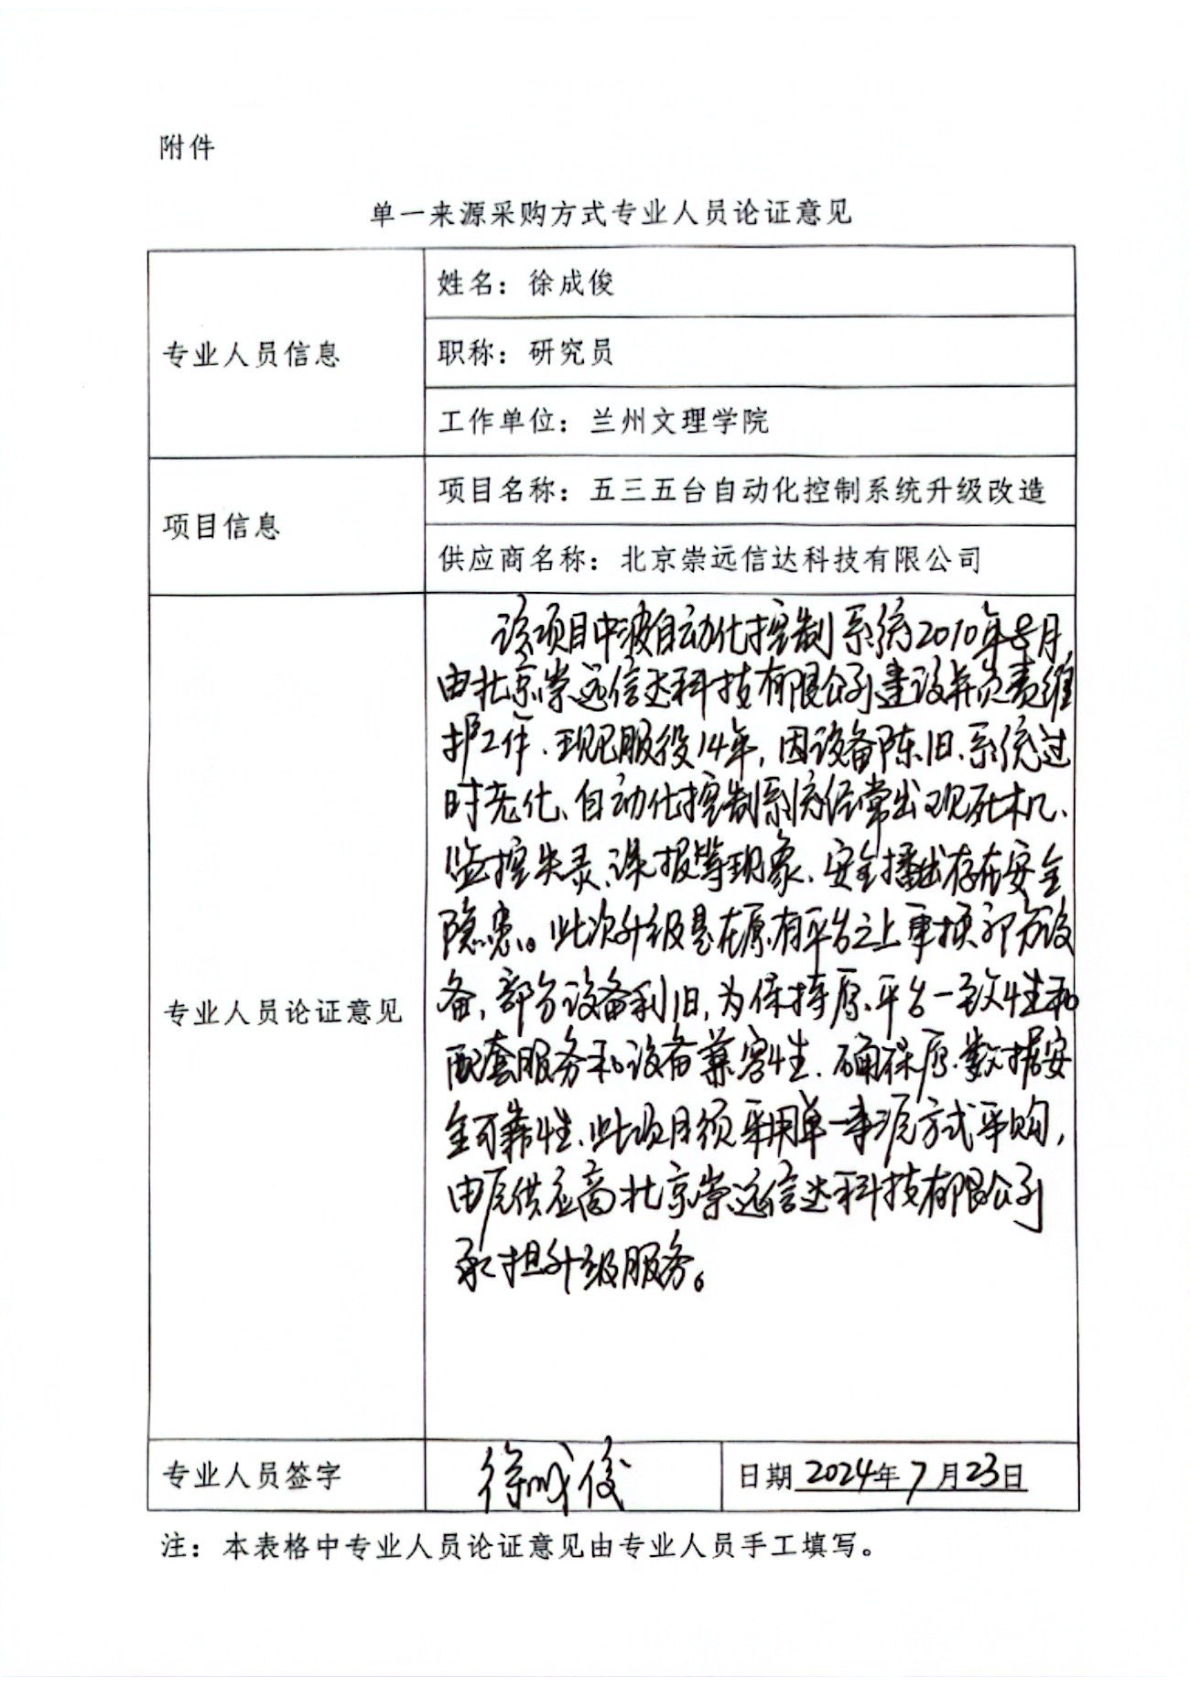 附件
单一来源采购方式专业人员论证意见
专业人员信息
姓名：徐成俊
职称：研究员
工作单位：兰州文理学院
项目信息
项目名称：五三五台自动化控制系统升级改造
供应商名称：北京崇远信达科技有限公司
专业人员论证意见
该项目中波自动化控制系统2010年8月
由北京崇远信达科技有限公司建设并负责维
护工作、现已服役14年，因设备陈旧、系统过
时老化、自动化控制系统经常出现死机、
监控失灵、误报等现象、安全播出存在安全
隐患。此次升级是在原有平台之上更换部分设
备，部分设备利旧，为保持原平台一致性和
配套服务和设备兼容性、确保原数据安
全可靠性、此项目须采用单一来源方式采购，
由原供应商北京崇远信达科技有限公司
承担升级服务。
专业人员签字
徐成俊
日期 2024年7月23日
注：本表格中专业人员论证意见由专业人员手工填写。